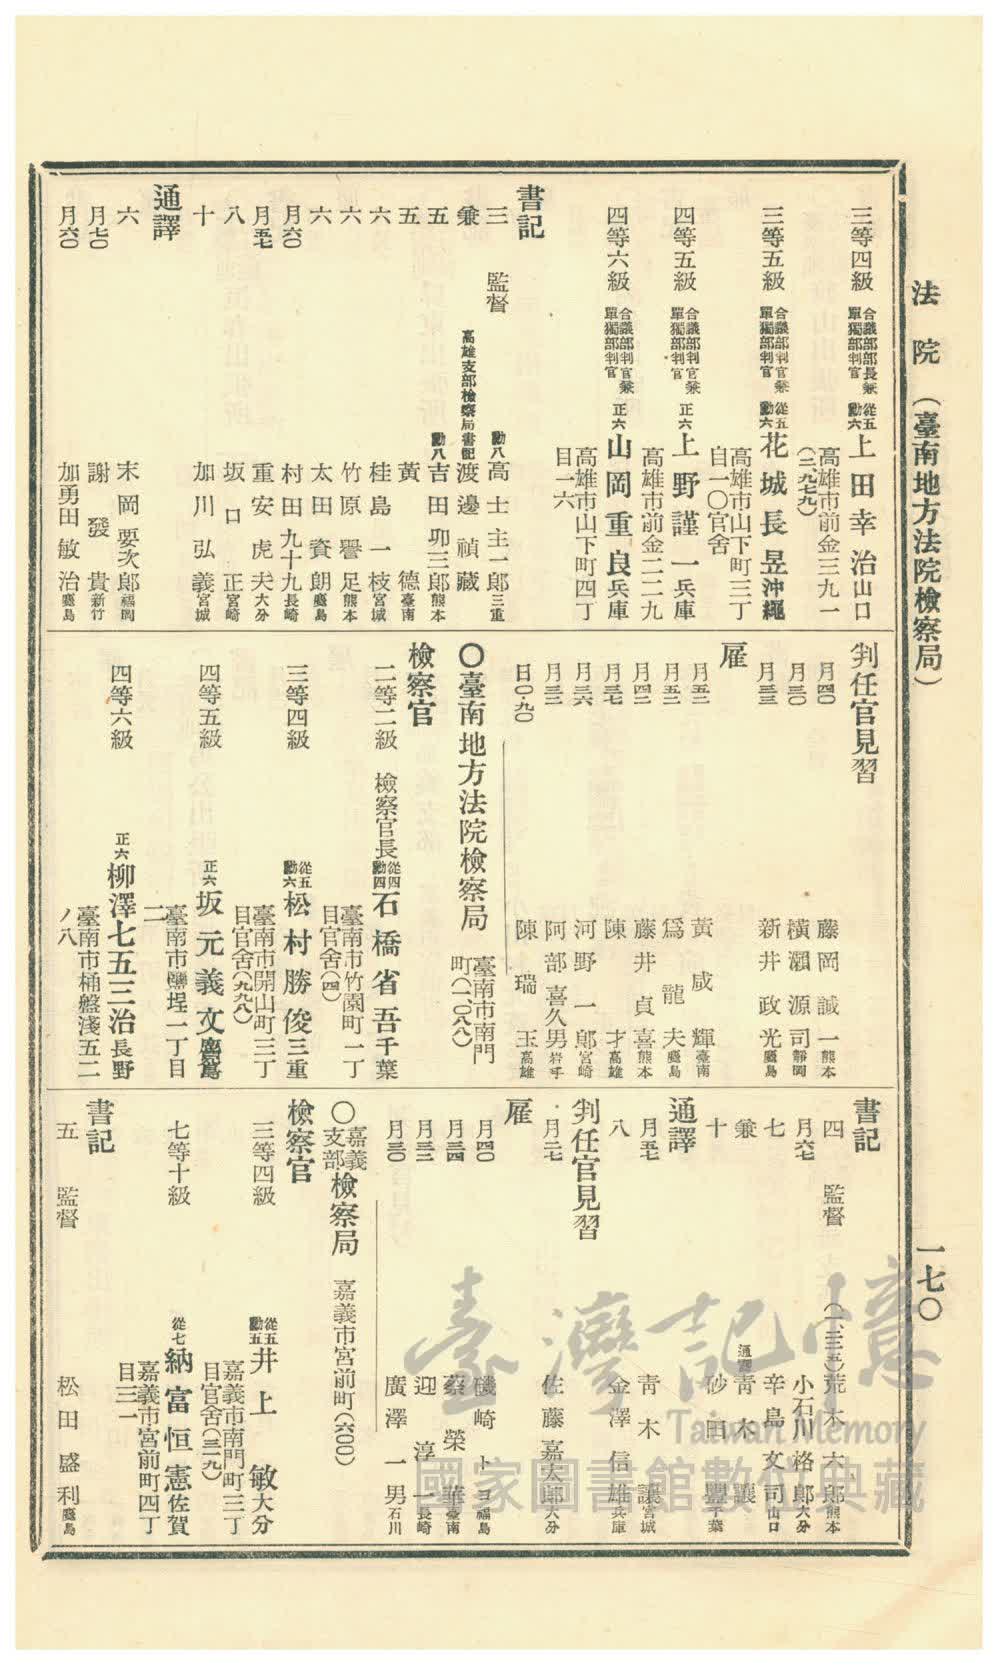 法院（臺南地方法院檢察局）
一七〇
三等四級 合議部部長兼單獨部判官 從五勳六 上田幸治 山口
高雄市前金三九一（二、九七九）
三等五級 合議部判官兼單獨部判官 從五勳六 花城長昱 沖繩
高雄市山下町三丁目一〇官舍
四等五級 合議部判官兼單獨部判官 正六 上野謹一 兵庫
高雄市前金二二九
四等六級 合議部判官兼單獨部判官 正六 山岡重良 兵庫
高雄市山下町四丁目一六
書記
三 監督 勳八 高士主一郎 三重
兼 高雄支部檢察局書記 渡邊禎藏
五 勳八 吉田卯三郎 熊本
五 黃德 臺南
六 桂島一枝 宮城
六 竹原譽足 熊本
六 太田資朗 鹿兒島
月六〇 村田九十九 長崎
月五七 重安虎夫 大分
八 坂口正 宮崎
十 加川弘義 宮城
通譯
六 末岡要次郎 福岡
月七〇 謝發貴 新竹
月六〇 加勇田敏治 鹿兒島
判任官見習
月四〇 藤岡誠一 熊本
月三〇 橫瀨源司 靜岡
月三三 新井政光 鹿兒島
雇
月五三 黃咸輝 臺南
月五三 爲龍夫 鹿兒島
月四三 藤井貞喜 熊本
月三七 陳才 高雄
月三六 河野一郎 宮崎
月三三 阿部喜久男 岩手
日〇・九〇 陳瑞玉 高雄
〇臺南地方法院檢察局 臺南市南門町（二、〇八八）
檢察官
二等二級 檢察官長 從四勳四 石橋省吾 千葉
臺南市竹園町一丁目官舍（四）
三等四級 從五勳六 松村勝俊 三重
臺南市開山町三丁目官舍（九九八）
四等五級 正六 坂元義文 鹿兒島
臺南市鹽埕一丁目二一
四等六級 正六 柳澤七五三治 長野
臺南市桶盤淺五二ノ八
書記
四 監督 （一、三三五）荒木六郎 熊本
月六七 小石川格郎 大分
七 辛島文司 山口
兼 通譯 青木讓
十 砂田豐 千葉
通譯
月五七 青木讓 宮城
八 金澤信雄 兵庫
判任官見習
月二七 佐藤嘉太郎 大分
雇
月四〇 磯崎トヨ 福島
月三四 蔡榮華 臺南
月三三 迎淳一 長崎
月三〇 廣澤一男 石川
〇嘉義支部檢察局 嘉義市宮前町（六〇〇）
檢察官
三等四級 從五勳五 井上敏 大分
嘉義市南門町三丁目官舍（三一九）
七等十級 從七 納富恒憲 佐賀
嘉義市宮前町四丁目三一
書記
五 監督 松田盛利 鹿兒島
臺灣記憶
Taiwan Memory
國家圖書館數位典藏